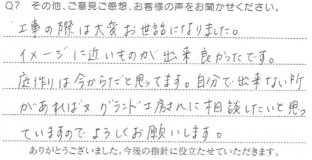 Q7 その他、ご意見ご感想、お客様の声をお聞かせください。
工事の際は大変お世話になりました。
イメージに近いものが出来良かったです。
庭作りは今からだと思ってます。自分で出来ない所
があれば又グランド工房さんに相談したいと思っ
ていますのでようしくお願いします。
ありがとうございました。今後の指針に役立たせていただきます。